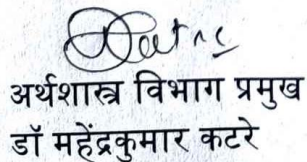 अर्थशास्त्र विभाग प्रमुख
डॉ महेंद्रकुमार कटरे